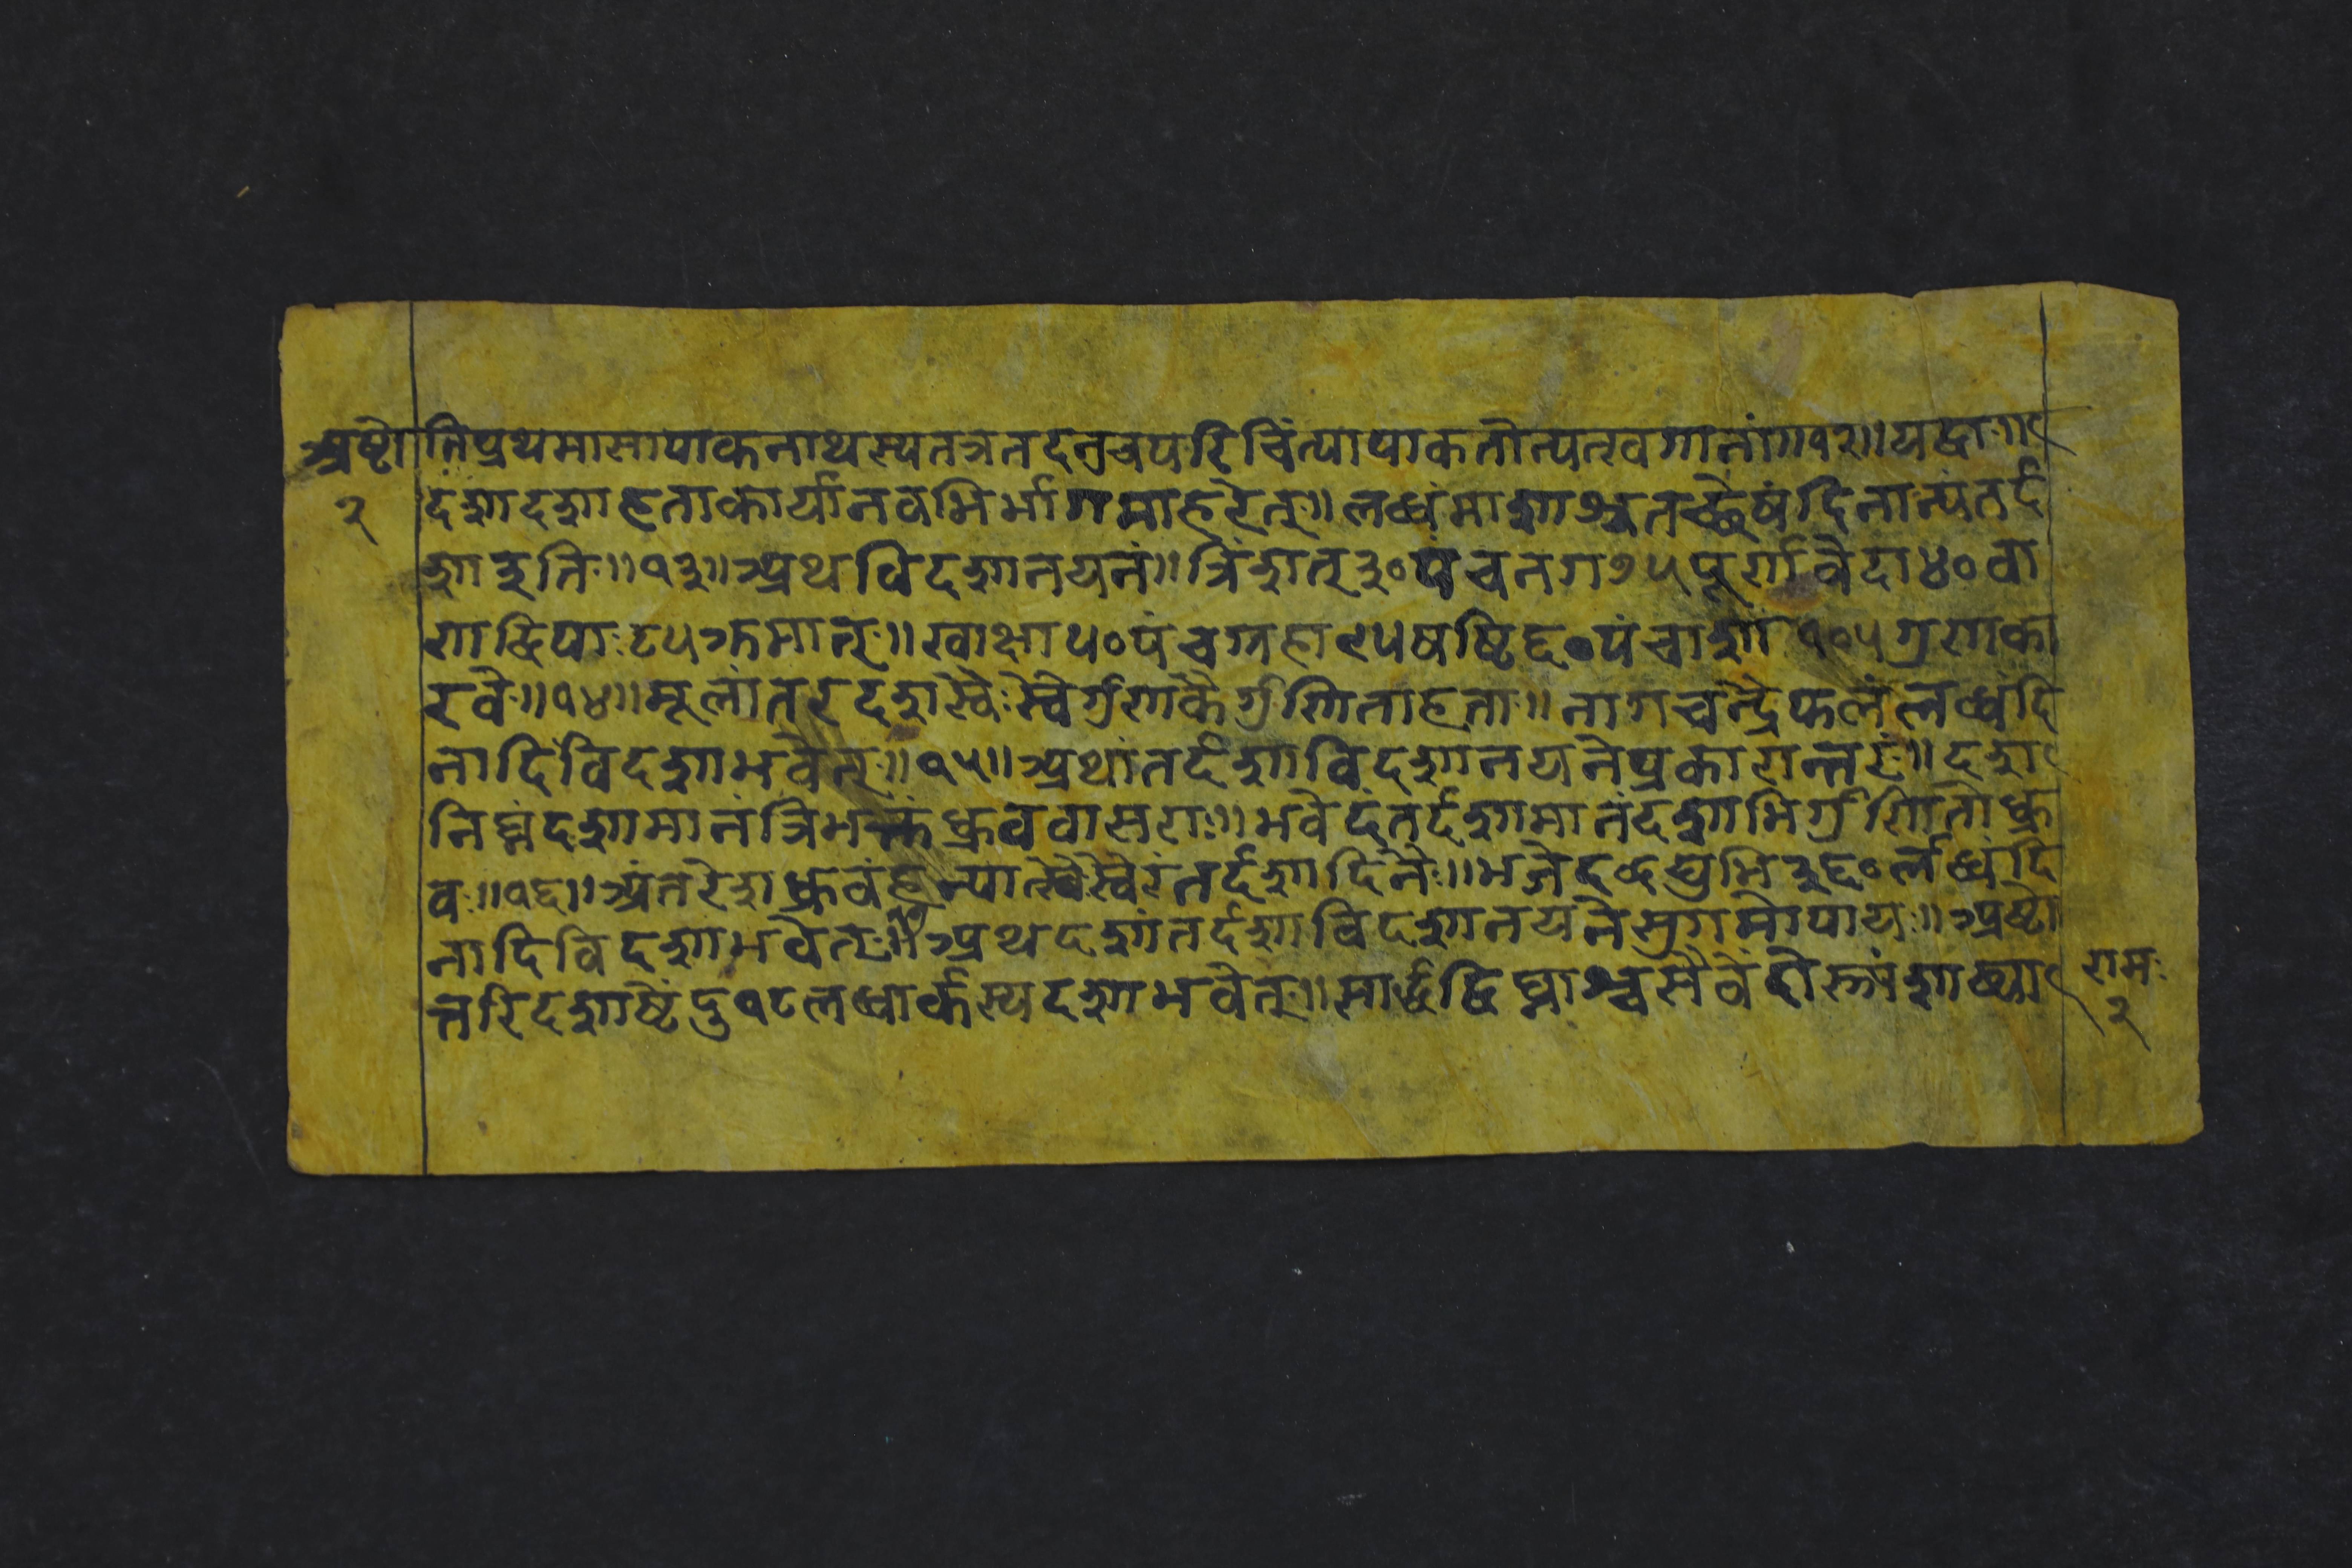 अष्टो त्तिप्रथमासापाकनाथस्यतत्रतदनुचपरिचिंत्यापाकतोत्पत्खगानां॥१२॥यद्वाः॥
२ दंशादशाहताकार्यानवभिर्भागमाहरेत्॥लब्धंमाशाश्चतच्छेषंदिनान्यंतर्द
शाइति॥१३॥अथविदशानयनं॥त्रिंशत्३०पंचनग७५पूर्णावेदा४०वा
णाद्विपाः८५क्रमात्॥खाक्षा५०पंचग्रहा९५षष्टि६०पंचाशा१०५गुणाका
रवैः॥१४॥मूलांतरदशास्वैःस्वैर्गुणाकैर्गुणिताहताः॥नागचन्द्रेफलंलब्धंदि
नादिविदशाभवेत्॥१५॥अथांतर्दशाविदशानयनेप्रकारान्तरं॥दशा
निघ्नंदशामानंत्रिभक्तंध्रुववासराः॥भवेदंतर्दशामानंदशाभिर्गुणितोध्रु
वः॥१६॥अंतरेशध्रुवंहन्यात्स्वैस्वैरंतर्दशादिनैः॥भजेद्व्द्युभि३६०र्लब्धंदि
नादिविदशाभवेत्॥१७॥अथदशांतर्दशाविदशानयनेसुगमोपायः॥अष्टो
त्तरिदशाष्टेंदु१८लब्धार्कस्यदशाभवेत्॥सार्द्धद्विघ्नाश्चसैवेंदोस्त्र्यंशाढ्या
रामः
२